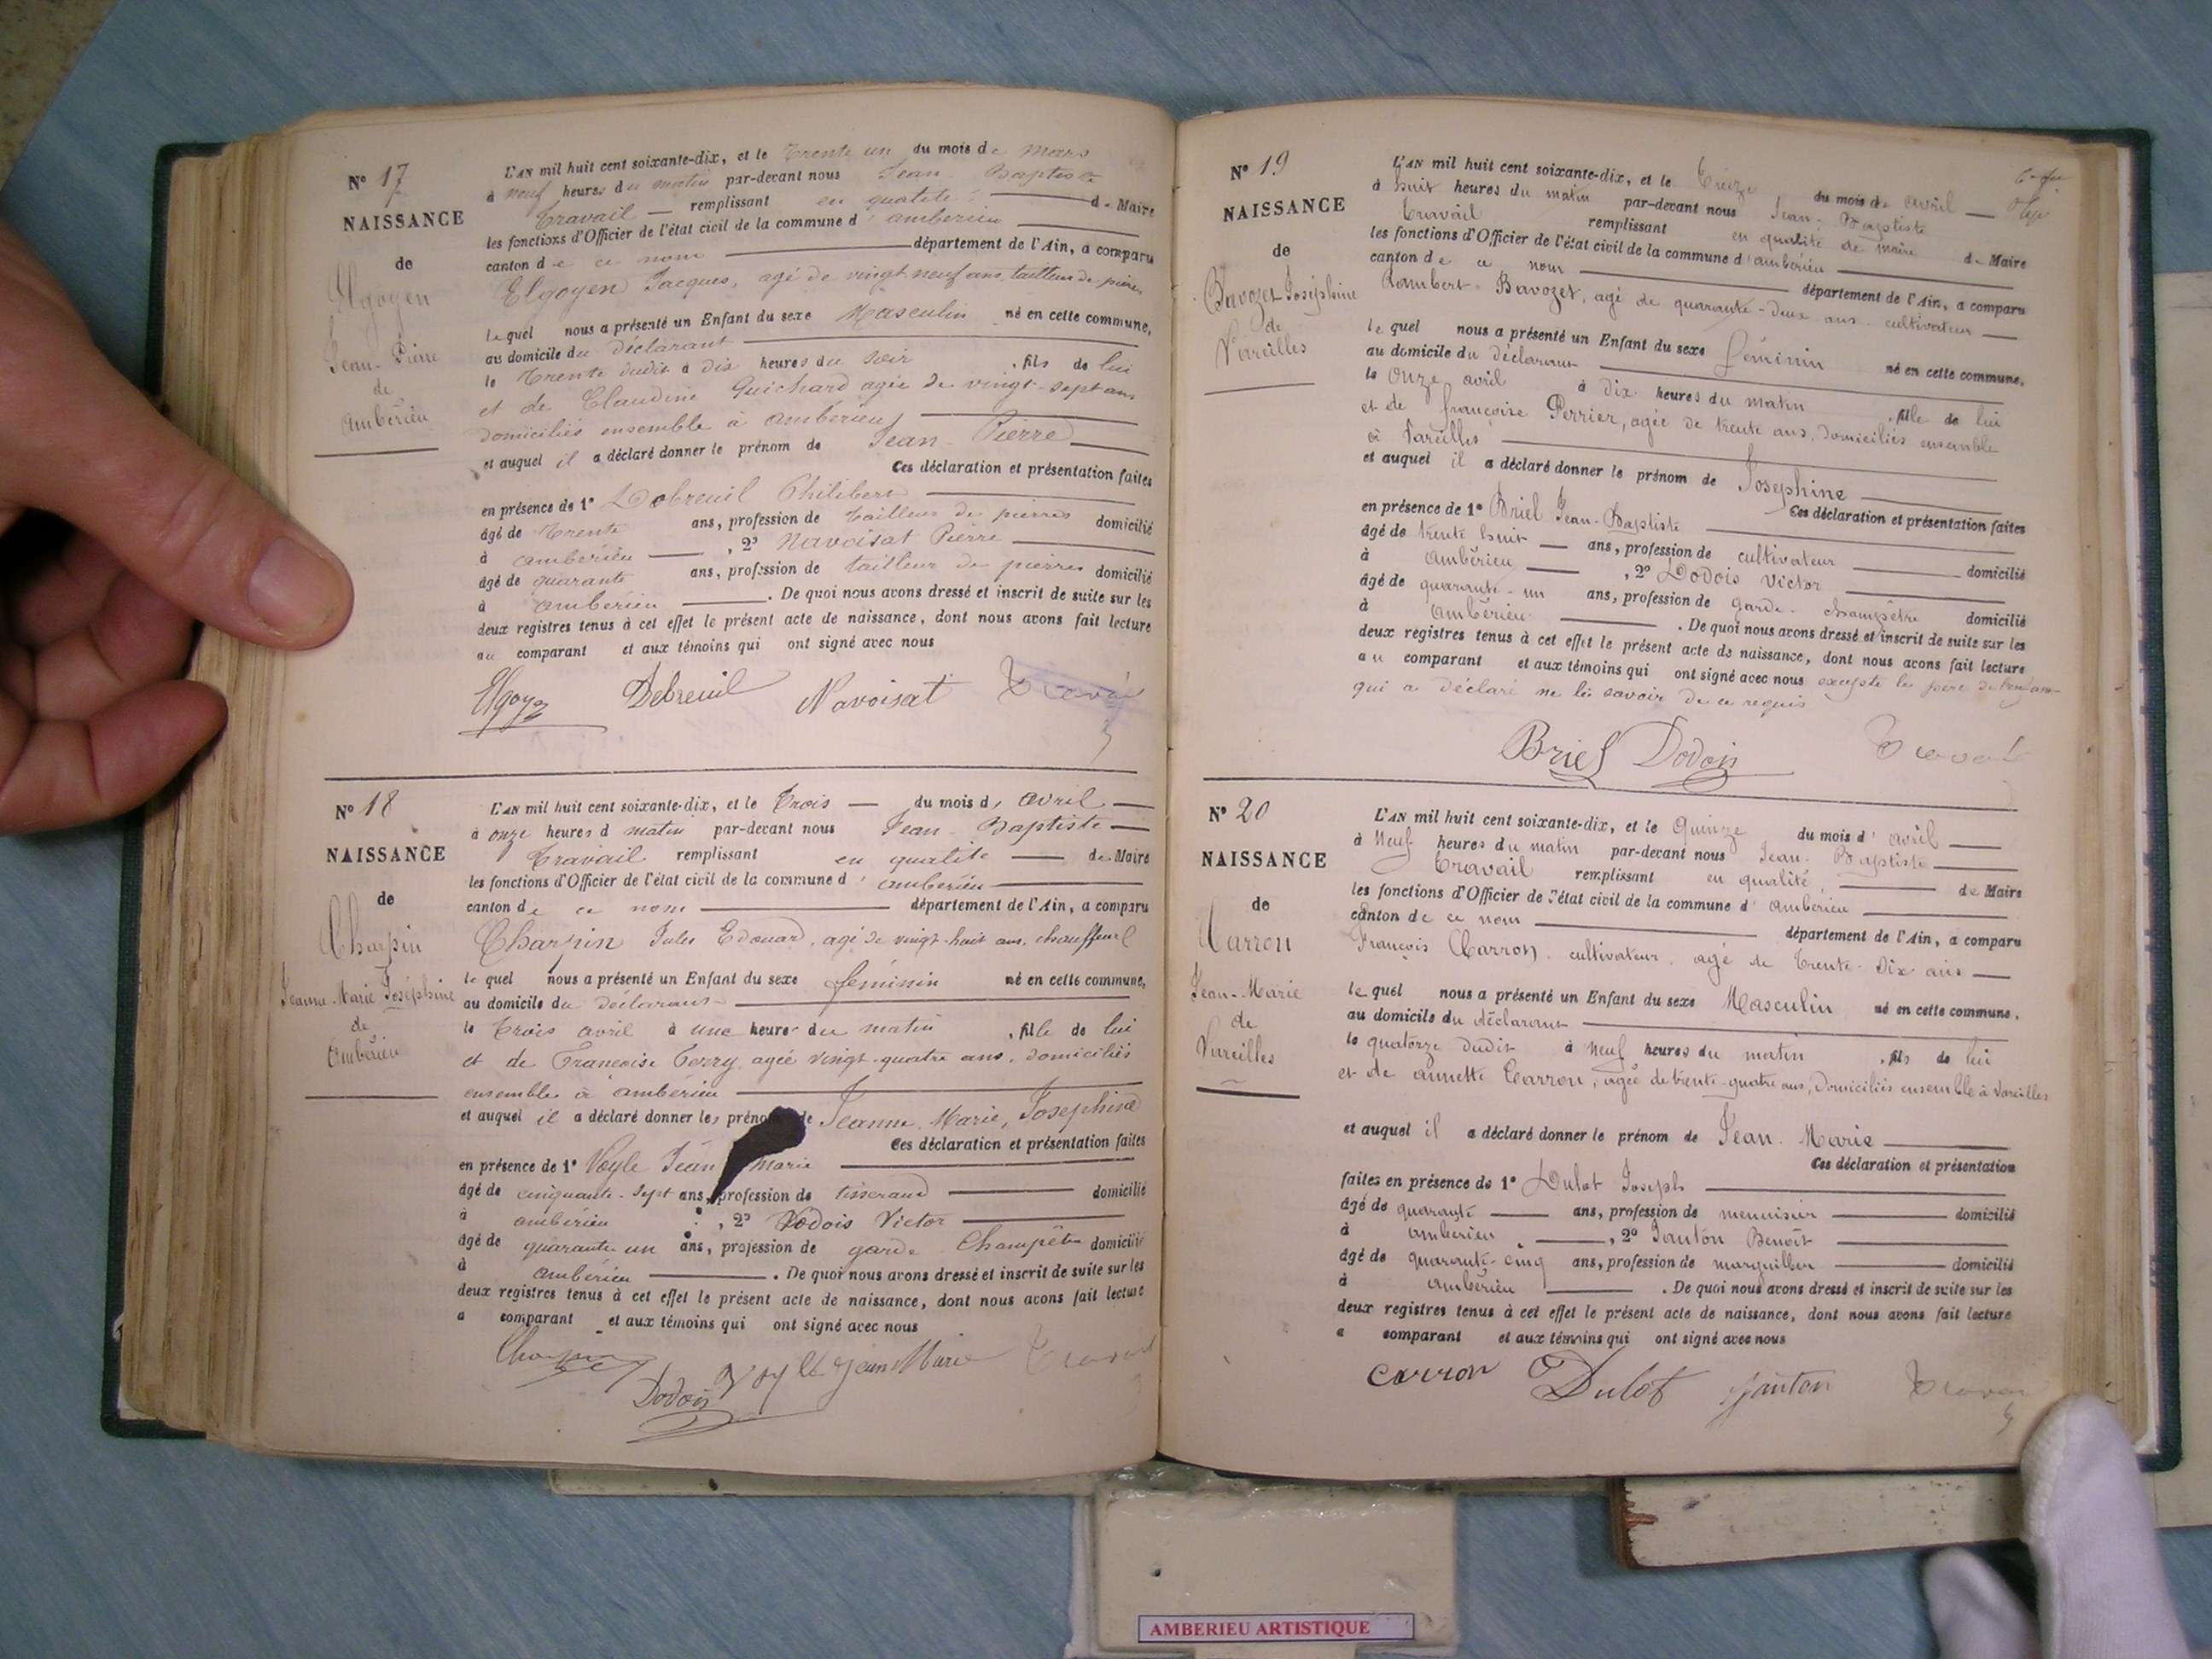 N° 17
NAISSANCE
de
Elgoyen
Jean-Pierre
de
Ambérieu
L'AN mil huit cent soixante-dix, et le trente un du mois de mars
à neuf heures du matin par-devant nous Jean-Baptiste
Travail remplissant en qualité de Maire
les fonctions d'Officier de l'état civil de la commune d'ambérieu
canton de ce nom département de l'Ain, a comparu
Elgoyen Jacques, agé de vingt neuf ans, tailleur de pierres
lequel nous a présenté un Enfant du sexe Masculin né en cette commune,
au domicile du déclarant
le trente dudit à dix heures du soir, fils de lui
et de Claudine Guichard agée de vingt-sept ans
domiciliés ensemble à ambérieu
et auquel il a déclaré donner le prénom de Jean-Pierre
Ces déclaration et présentation faites
en présence de 1° Debreuil Philibert
âgé de trente ans, profession de tailleur de pierres domicilié
à ambérieu, 2° Navoisat Pierre
âgé de quarante ans, profession de tailleur de pierres domicilié
à ambérieu. De quoi nous avons dressé et inscrit de suite sur les
deux registres tenus à cet effet le présent acte de naissance, dont nous avons fait lecture
au comparant et aux témoins qui ont signé avec nous
Debreuil Navoisat Travail
N° 18
NAISSANCE
de
Charpin
Jeanne-Marie Joséphine
de
Ambérieu
L'AN mil huit cent soixante-dix, et le trois du mois d'avril
à onze heures d matin par-devant nous Jean-Baptiste
Travail remplissant en qualité de Maire
les fonctions d'Officier de l'état civil de la commune d'ambérieu
canton de ce nom département de l'Ain, a comparu
Charpin Jules Edouard, agé de vingt-huit ans, chauffeur
lequel nous a présenté un Enfant du sexe féminin né en cette commune,
au domicile du déclarant
le trois avril à une heure du matin, fille de lui
et de Françoise Terry, agée vingt-quatre ans, domiciliés
ensemble à ambérieu
et auquel il a déclaré donner les prénoms de Jeanne, Marie, Josephine
Ces déclaration et présentation faites
en présence de 1° Voyle Jean Marie
âgé de cinquante-sept ans, profession de tisserand domicilié
à ambérieu, 2° Dodois Victor
âgé de quarante un ans, profession de garde Champêtre domicilié
à ambérieu. De quoi nous avons dressé et inscrit de suite sur les
deux registres tenus à cet effet le présent acte de naissance, dont nous avons fait lecture
a comparant et aux témoins qui ont signé avec nous
Dodois Voylle Jean Marie Travail
N° 19
NAISSANCE
de
Bavozet Joséphine
de
Vareilles
L'AN mil huit cent soixante-dix, et le treize du mois de avril
à huit heures du matin par-devant nous Jean-Baptiste
Travail remplissant en qualité de maire de Maire
les fonctions d'Officier de l'état civil de la commune d'ambérieu
canton de ce nom département de l'Ain, a comparu
Rambert Bavozet, agé de quarante-deux ans, cultivateur
lequel nous a présenté un Enfant du sexe féminin né en cette commune,
au domicile du déclarant
le onze avril à dix heures du matin, fille de lui
et de françoise Perrier, agée de trente ans, domiciliés ensemble
à Vareilles
et auquel il a déclaré donner le prénom de Josephine
Ces déclaration et présentation faites
en présence de 1° Briel Jean-Baptiste
âgé de trente huit ans, profession de cultivateur domicilié
à Ambérieu, 2° Dodois Victor
âgé de quarante-un ans, profession de garde-champêtre domicilié
à ambérieu. De quoi nous avons dressé et inscrit de suite sur les
deux registres tenus à cet effet le présent acte de naissance, dont nous avons fait lecture
au comparant et aux témoins qui ont signé avec nous excepté le père de l'enfant
qui a déclaré ne le savoir de ce requis
Briel Dodois Travail
N° 20
NAISSANCE
de
Carron
Jean-Marie
de
Vareilles
L'AN mil huit cent soixante-dix, et le quinze du mois d'avril
à neuf heures du matin par-devant nous Jean-Baptiste
Travail remplissant en qualité de Maire
les fonctions d'Officier de l'état civil de la commune d'ambérieu
canton de ce nom département de l'Ain, a comparu
François Carron, cultivateur, agé de trente-dix ans
lequel nous a présenté un Enfant du sexe Masculin né en cette commune,
au domicile du déclarant
le quatorze dudit à neuf heures du matin, fils de lui
et de annette Carron, agée de trente-quatre ans, domiciliés ensemble à Vareilles
et auquel il a déclaré donner le prénom de Jean-Marie
Ces déclaration et présentation
faites en présence de 1° Dulot Joseph
âgé de quarante ans, profession de menuisier domicilié
à ambérieu, 2° Janton Benoît
âgé de quarante-cinq ans, profession de marguiller domicilié
à ambérieu. De quoi nous avons dressé et inscrit de suite sur les
deux registres tenus à cet effet le présent acte de naissance, dont nous avons fait lecture
a comparant et aux témoins qui ont signé avec nous
Carron Dulot Janton Travail
AMBERIEU ARTISTIQUE